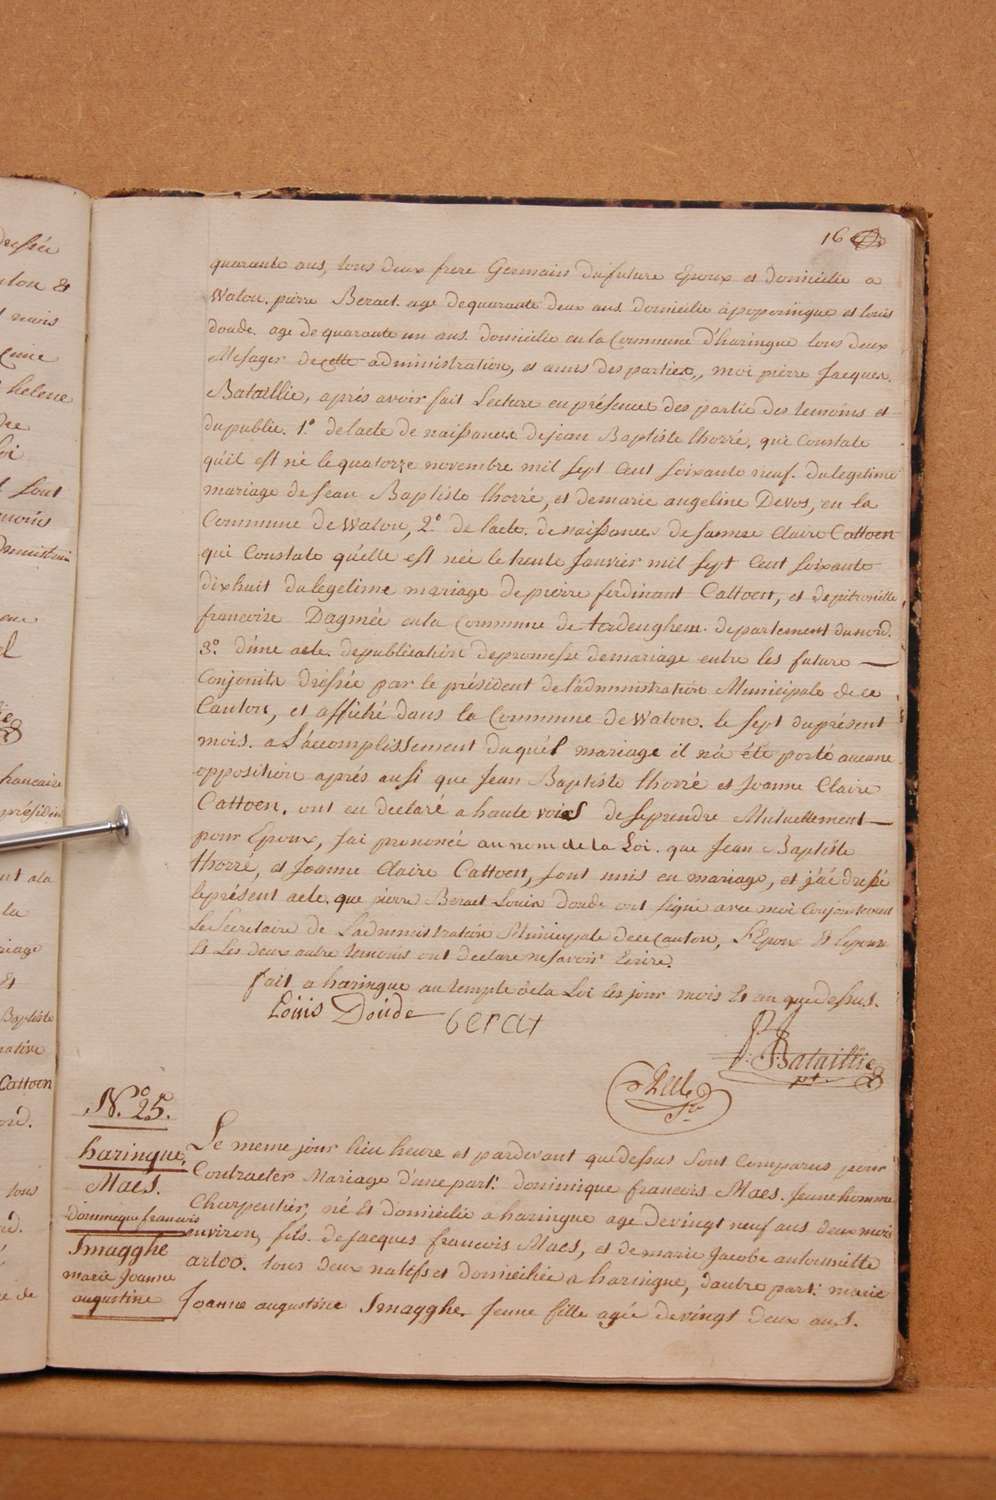 16
quarante ans, tous deux frere Germains du future Epoux et domicilie a
Watou. pierre Beraet. age de quarante deux ans. domicilie a poperingue et louis
doude. age de quarante un ans. domicilie en la Commune d'haringue tous deux
Mesagers de cette administration, et amis des parties,, moi pierre Jacques
Bataillie, aprés avoir fait Lecture en présence des partie des temoins et
du public. 1.º de l'acte de naissance de jean Baptiste thorré, qui Constate
qu'il est né le quatorze novembre mil sept Cent soixante neuf. du legetime
mariage de Jean Baptiste thorré, et de marie angeline Devos, en la
Commune de Watou, 2.º de lacte. de naissance de Joanne Claire Cattoen
qui Constate qu'elle est née le trente Janvier mil sept Cent soixante
dix huit du legetime mariage de pierre ferdinant Cattoen, et de pitronille
francoise Dagmée en la Commune de terdenghem. departement du nord.
3.º d'une acte. de publication de promesse de mariage entre les future
Conjoints dréssée par le président de l'administration Municipale de ce
Canton, et affiché dans la Commune de Watou. le sept du présent
mois. a L'accomplissement duquél mariage il n'a été porté aucune
opposition aprés ausi que Jean Baptiste thorré et Joanne Claire
Cattoen. ont eu declaré a haute voix de se prendre Mutuellement
pour Epoux, j'ai prononcé au nom de la Loi. que Jean Baptiste
thorré, et Joanne Claire Cattoen, sont unis en mariage, et j'ai dressé
le présent acte. que piérre Beraet Louis doude ont signé avec moi Conjointement
Le Secretaire de L'administration Municipale de ce Canton, L'Epoux Et L'epouse
Et Les deux autre temoins ont declare ne savoir Ecrire.
fait a haringue au temple de la Loi les jour mois Et an que dessus.
Loúis Doúde berat
P. J. Bataillie
pt.
N.º 25.
haringue.
Maes.
dominique francois
Smagghe
marie Joanne
augustine
Le meme jour lieu heure et pardevant que dessus Sont Comparus pour
Contracter Mariage d'une part. dominique francois Maes. Jeune homme
Charpentier, né Et domicilié a haringue age de vingt neuf ans deux mois
environ, fils. de jacques francois Maes, et de marie Jacobe antoinette
artoo. tous deux natifs et domiciliée a haringue, d'autre part. marie
Joanne augustine Smagghe. Jeune fille agée de vingt deux ans.